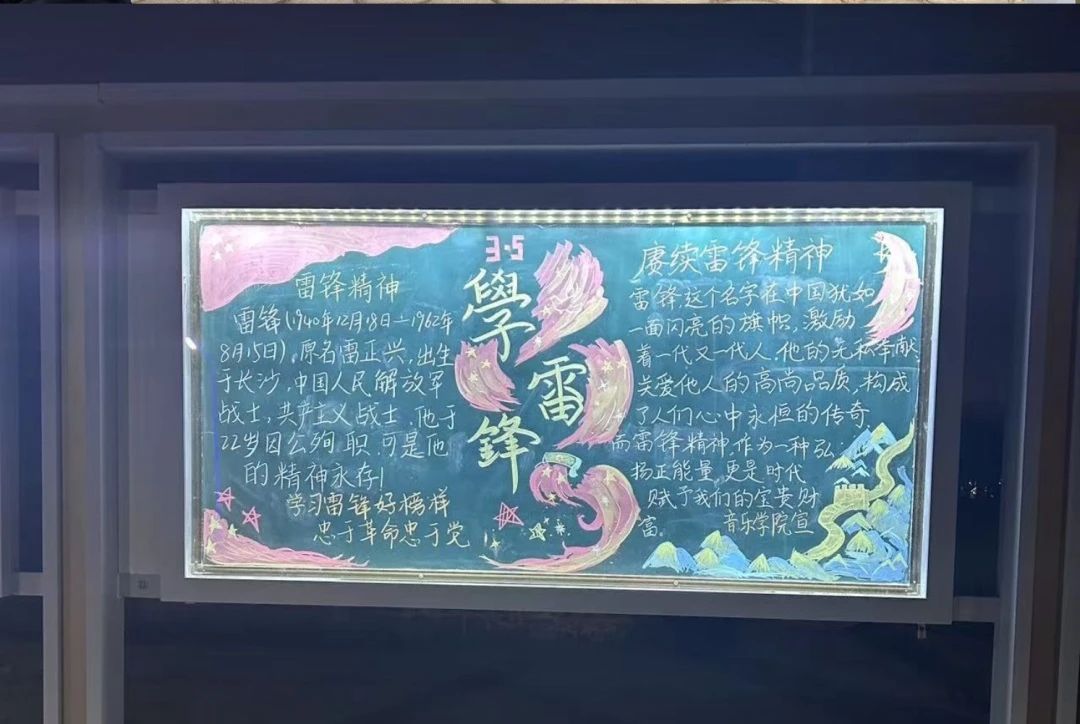 雷锋精神
雷锋(1940年12月18日—1962年
8月15日),原名雷正兴,出生
于长沙,中国人民解放军
战士,共产主义战士,他于
22岁因公殉职,可是他
的精神永存!
学习雷锋好榜样
忠于革命忠于党
3·5
學
雷
鋒
赓续雷锋精神
雷锋这个名字在中国犹如
一面闪亮的旗帜,激励
着一代又一代人,他的无私奉献
关爱他人的高尚品质,构成
了人们心中永恒的传奇
而雷锋精神,作为一种弘
扬正能量,更是时代
赋予我们的宝贵财
富。
音乐学院宣